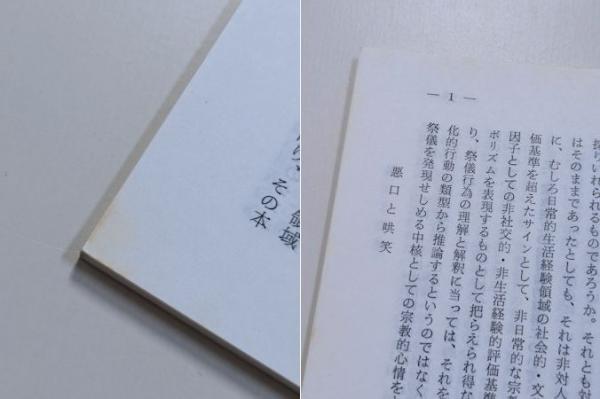 領域
その本
— 1 —
りいれられるものであろうか。それとも対
はそのままであったとしても、それは非対人
に、むしろ日常的生活経験領域の社会的・文
価基準を超えたサインとして、非日常的な宗
因子としての非社交的・非生活経験的評価基準
ボリズムを表現するものとして把らえられ得な
り、祭儀行為の理解と解釈に当っては、それを
化的行動の類型から推論するというのではなく
祭儀を発現せしめる中核としての宗教的心情を
悪口と哄笑